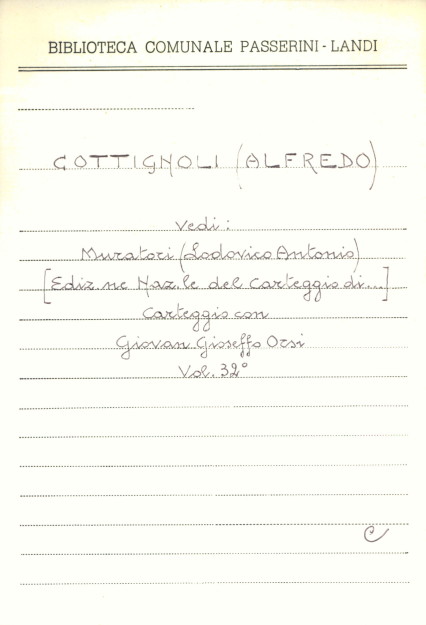 BIBLIOTECA COMUNALE PASSERINI - LANDI
COTTIGNOLI (ALFREDO)
Vedi:
Muratori (Lodovico Antonio)
[Ediz.ne Naz.le del Carteggio di...]
Carteggio con
Giovan Gioseffo Orsi
Vol. 32°
C